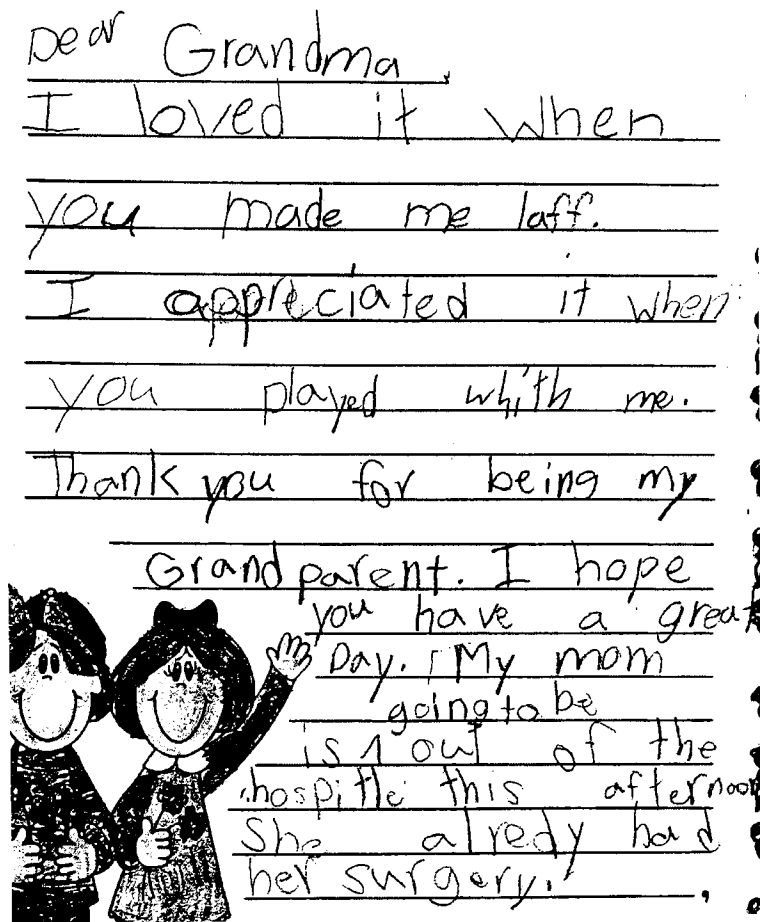 Dear Grandma,
I loved it when
you made me laff.
I appreciated it when
you played whith me.
Thank you for being my
Grandparent. I hope
you have a great
Day. My mom
going to be
is ^ out of the
hospitle this afternoon
She alredy had
her surgery.